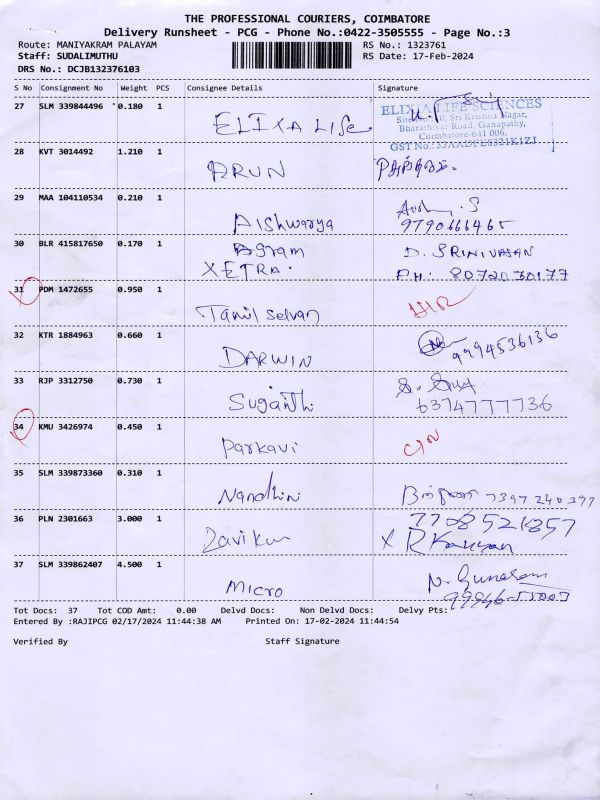 THE PROFESSIONAL COURIERS, COIMBATORE
Delivery Runsheet - PCG - Phone No.:0422-3505555 - Page No.:3
Route: MANIYAKRAM PALAYAM RS No.: 1323761
Staff: SUDALIMUTHU RS Date: 17-Feb-2024
DRS No.: DCJB132376103
S No Consignment No Weight PCS Consignee Details Signature
27 SLM 339844496 0.180 1
ELIXA LIfe
ELIXIA LIFE SCIENCES
Sri Krishna Nagar,
Bharathiyar Road, Ganapathy,
Coimbatore-641 006.
GST No.:33AADFE8321K1ZJ
28 KVT 3014492 1.210 1
ARUN
29 MAA 104110534 0.210 1
Aishwarya
9790666465
30 BLR 415817650 0.170 1
Agram D. SRINIVASAN
XETRA. PH: 8072030177
31 PDM 1472655 0.950 1
Tamil selvan
32 KTR 1884963 0.660 1
DARWIN 9994536136
33 RJP 3312750 0.730 1
Suganthi 6374777736
34 KMU 3426974 0.450 1
Parkavi
35 SLM 339873360 0.310 1
Nandhini 7397240397
36 PLN 2301663 3.000 1
7708521857
Ravikum X R Kannan
37 SLM 339862407 4.500 1
MICRO N. Gunaseni
99946-55003
Tot Docs: 37 Tot COD Amt: 0.00 Delvd Docs: Non Delvd Docs: Delvy Pts:
Entered By :RAJIPCG 02/17/2024 11:44:38 AM Printed On: 17-02-2024 11:44:54
Verified By Staff Signature